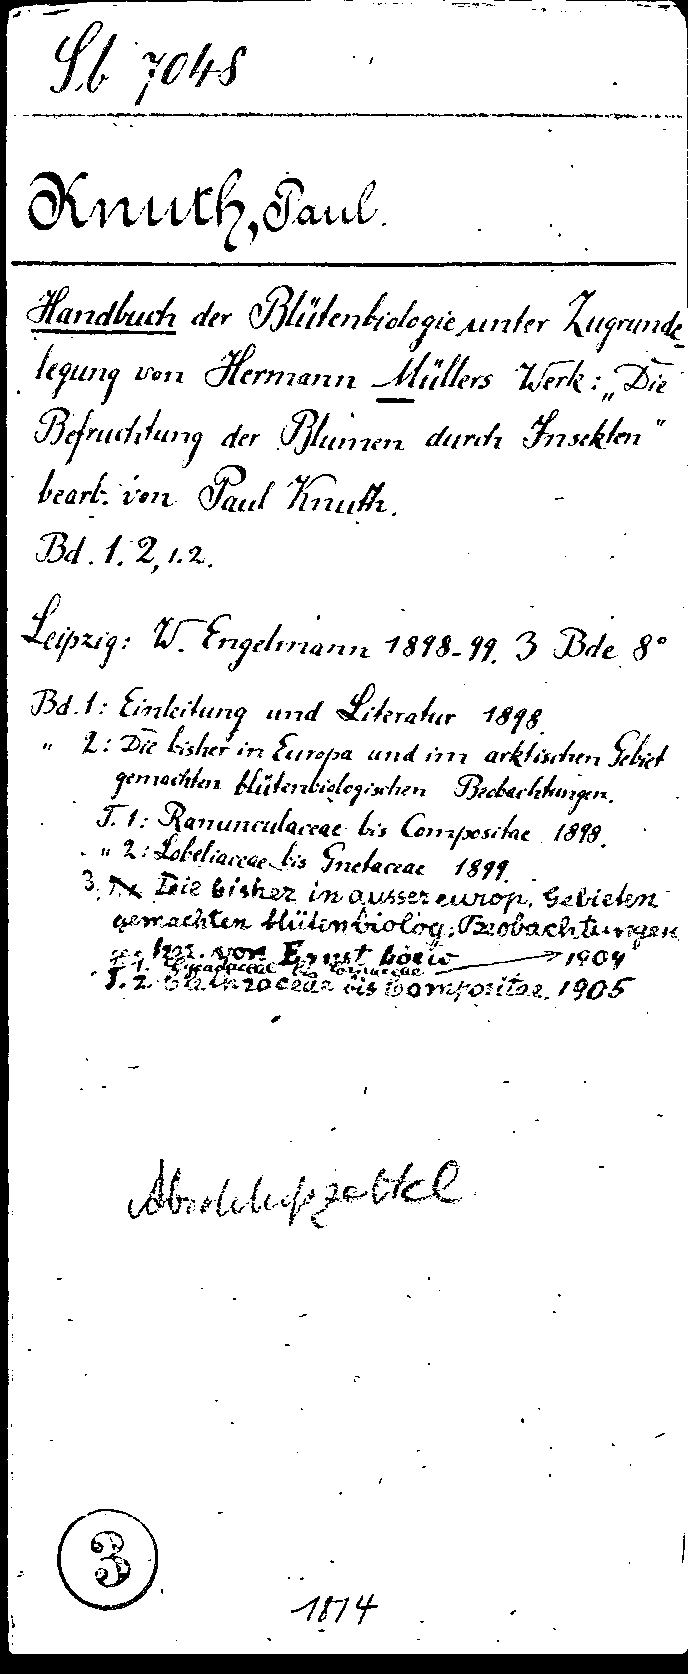 Sb 7048
Knuth, Paul.
Handbuch der Blütenbiologie, unter Zugrunde-
legung von Hermann Müllers Werk: „Die
Befruchtung der Blumen durch Insekten"
bearb. von Paul Knuth.
Bd. 1. 2, 1.2.
Leipzig: W. Engelmann 1898-99. 3 Bde 8°
Bd. 1: Einleitung und Literatur 1898.
" 2: Die bisher in Europa und im arktischen Gebiet
gemachten blütenbiologischen Beobachtungen.
T. 1: Ranunculaceae bis Compositae 1898.
" 2: Lobeliaceae bis Gnetaceae 1899.
3. Die bisher in aussereurop. Gebieten
gemachten blütenbiolog. Beobachtungen
hrsg. von Ernst Loew
T. 1. Cycadaceae bis Cornaceae 1904
T. 2. Clethraceae bis Compositae. 1905
Abschlußzettel
3
1814